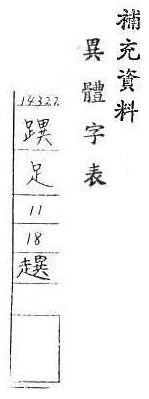 補充資料
異體字表
14322
足
11
18
趩